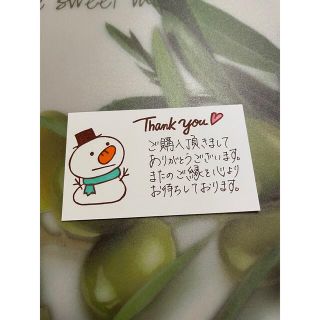 sweet
Thank you
ご購入頂きまして
ありがとうございます。
またのご縁を心より
お待ちしております。